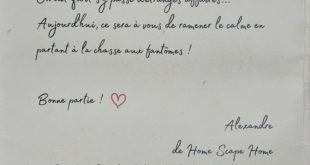 s'y passe d'étranges affaires...
Aujourd'hui, ce sera à vous de ramener le calme en
partant à la chasse aux fantômes !
Bonne partie !
Alexandre
de Home Scape Home